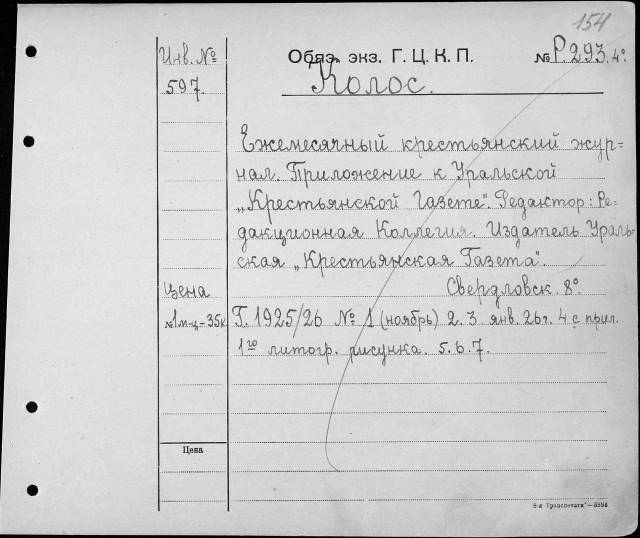 154
Инв. №
597.
Обяз. экз. Г. Ц. К. П.
№ Р.293.4°
Колос.
Ежемесячный крестьянский жур=
нал. Приложение к Уральской
„Крестьянской Газете". Редактор: Ре-
дакционная Коллегия. Издатель Ураль-
ская „Крестьянская Газета".
Свердловск. 8°.
Цена
№1 м-ц-35к
Г. 1925/26 № 1 (ноябрь) 2. 3 янв. 26г. 4 с прил.
1го литогр. рисунка. 5. 6. 7.
Цена
"—8884